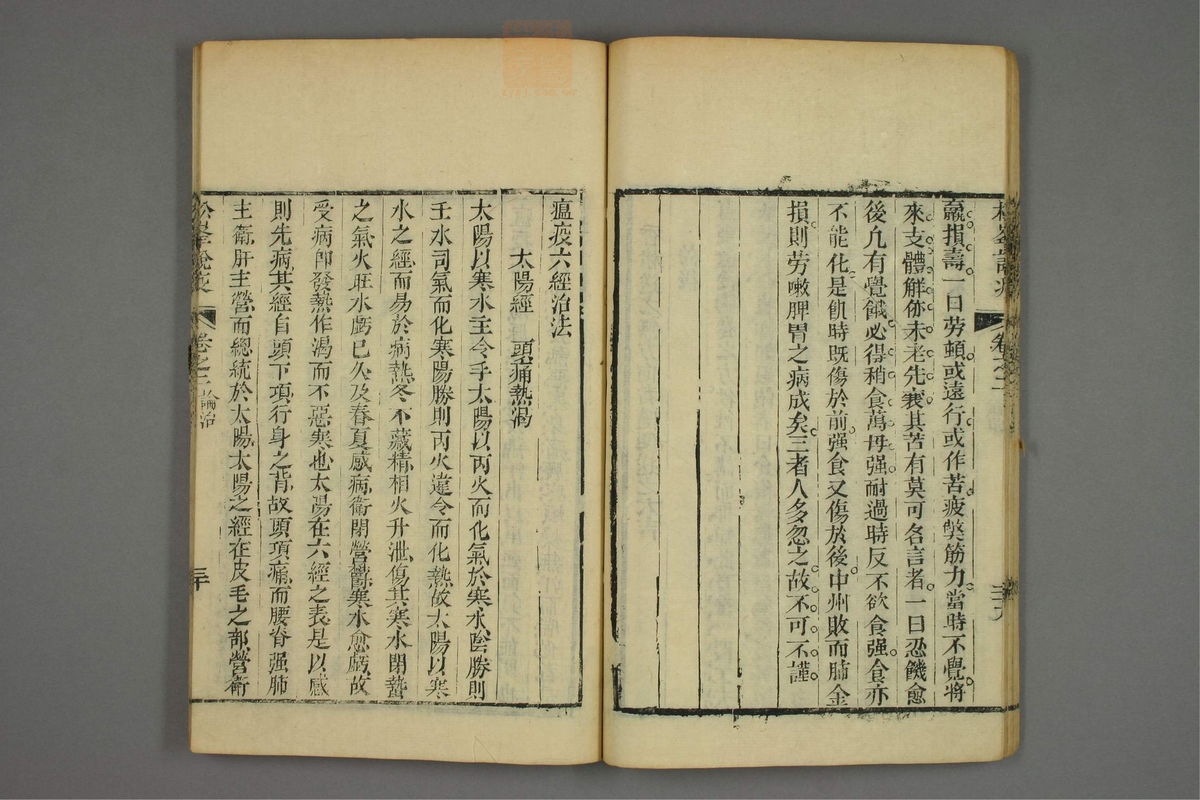 松峯說疫 卷之二 二十九
羸損壽一曰勞頓或遠行或作苦疲獘筋力當時不覺將
來支體解㑊未老先衰其苦有莫可名言者一曰忍饑愈
後凢有覺餓必得稍食萬毋强耐過時反不欲食强食亦
不能化是飢時既傷於前强食又傷於後中州敗而肺金
損則勞嗽脾胃之病成矣三者人多忽之故不可不謹
瘟疫六經治法
太陽經 頭痛熱渴
太陽以寒水主令手太陽以丙火而化氣於寒水陰勝則
壬水司氣而化寒陽勝則丙火違令而化熱故太陽以寒
水之經而易於病熱冬不藏精相火升泄傷其寒水閉蟄
之氣火旺水虧已久及春夏感病衛閉營欝寒水愈虧故
受病卽發熱作渴而不惡寒也太陽在六經之表是以感
則先病其經自頭下項行身之背故頭項痛而腰脊强肺
主衛肝主營而總統於太陽太陽之經在皮毛之部營衛
松峯說疫 卷之二 論治 三十